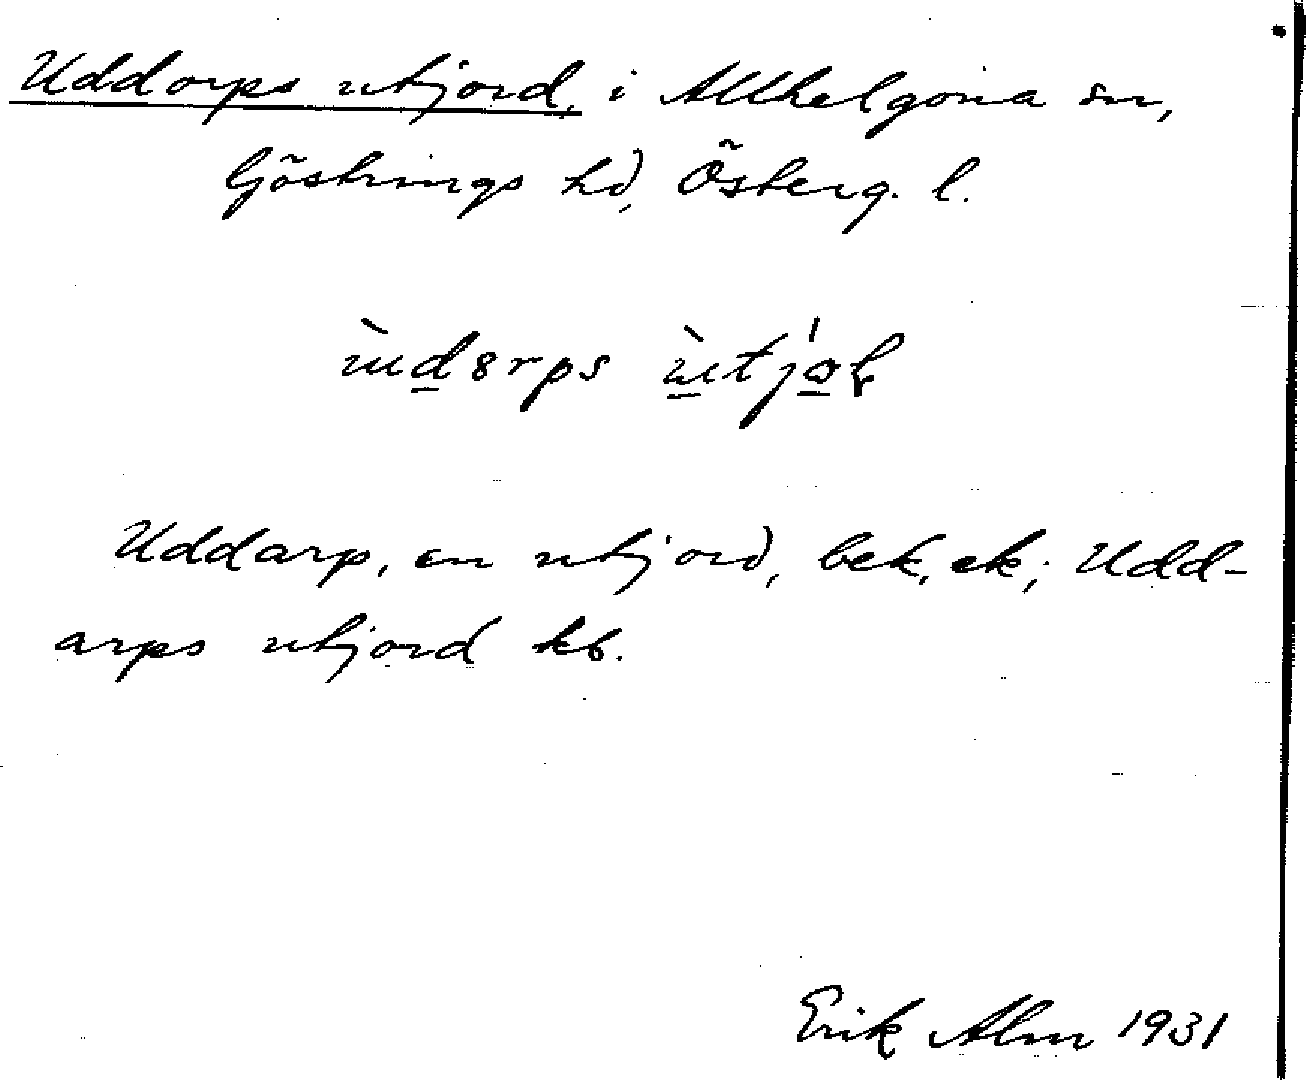 Uddorps utjord, i Allhelgona sn,
Göstrings hd, Österg. l.
Uddarp, en utjord, bek, ek; Udd-
arps utjord kb.
Erik Alm 1931